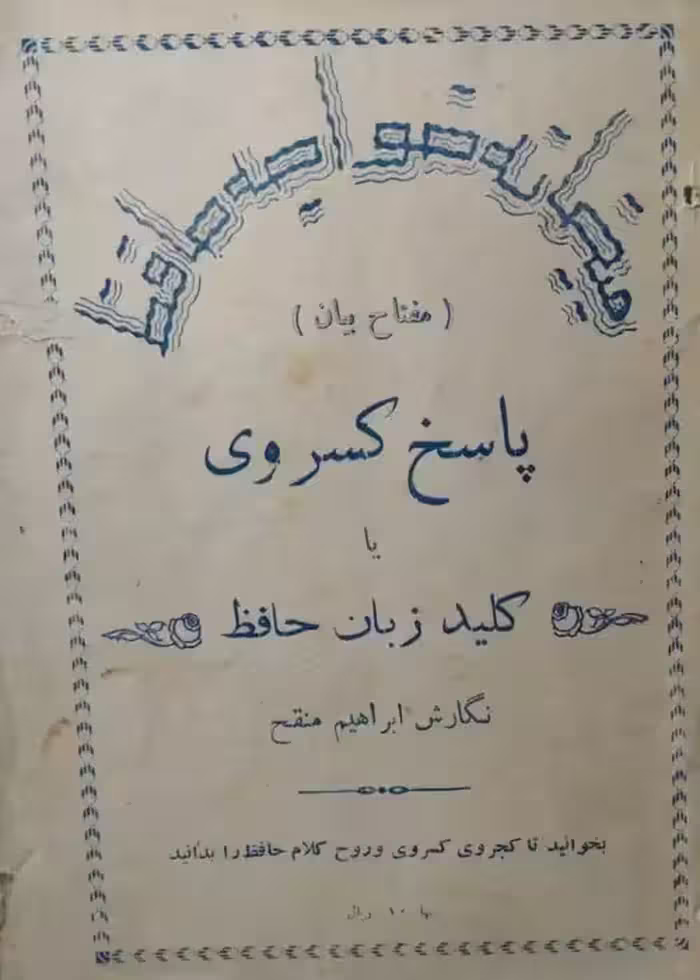 میخانه خواجه حافظ
( مفتاح بیان )
پاسخ کسروی
یا
کلید زبان حافظ
نگارش ابراهیم منقح
بخوانید تا کجروی کسروی وروح کلام حافظ را بدانید
بها ۱۰ ریال